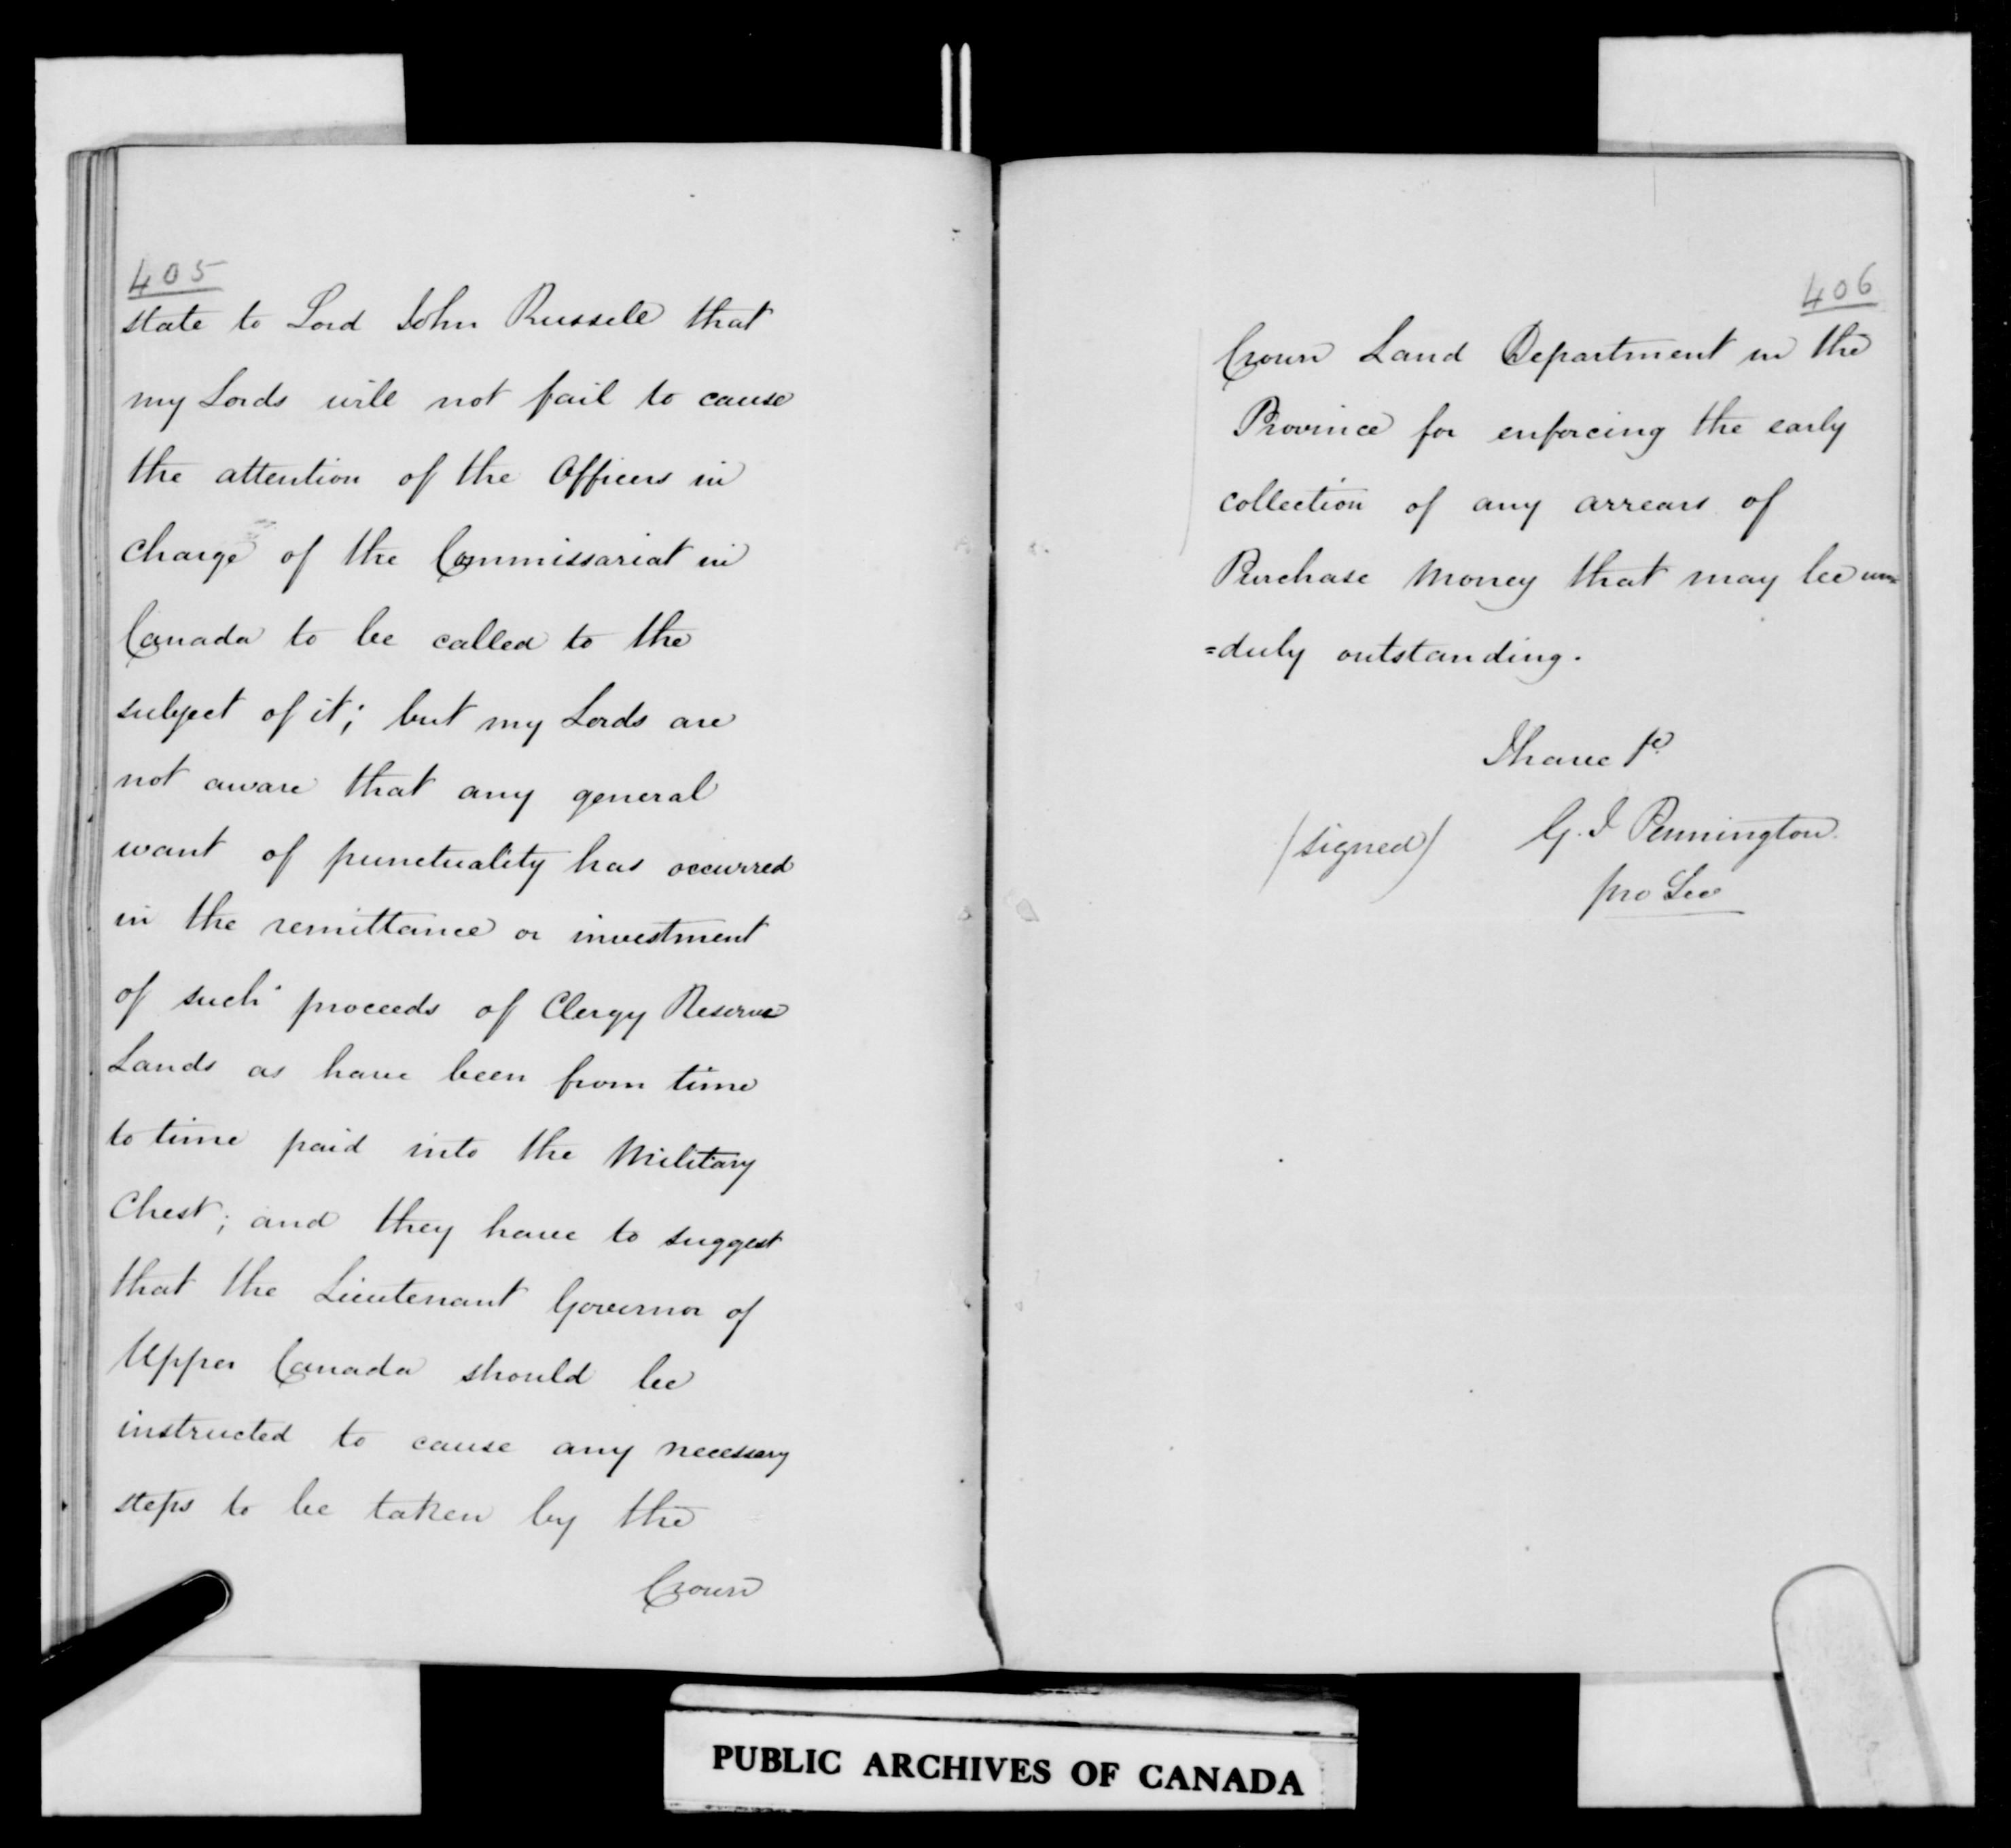 405
state to Lord John Russell that
my Lords will not fail to cause
the attention of the Officers in
charge of the Commissariat in
Canada to be called to the
subject of it; but my Lords are
not aware that any general
want of punctuality has occurred
in the remittance or investment
of such proceeds of Clergy Reserve
Lands as have been from time
to time paid into the Military
Chest; and they have to suggest
that the Lieutenant Governor of
Upper Canada should be
instructed to cause any necessary
steps to be taken by the
Crown
406
Crown Land Department in the
Province for enforcing the early
collection of any arrears of
Purchase Money that may be un=
=duly outstanding.
I have &c
(signed) G. I Pennington
pro Sec
PUBLIC ARCHIVES OF CANADA